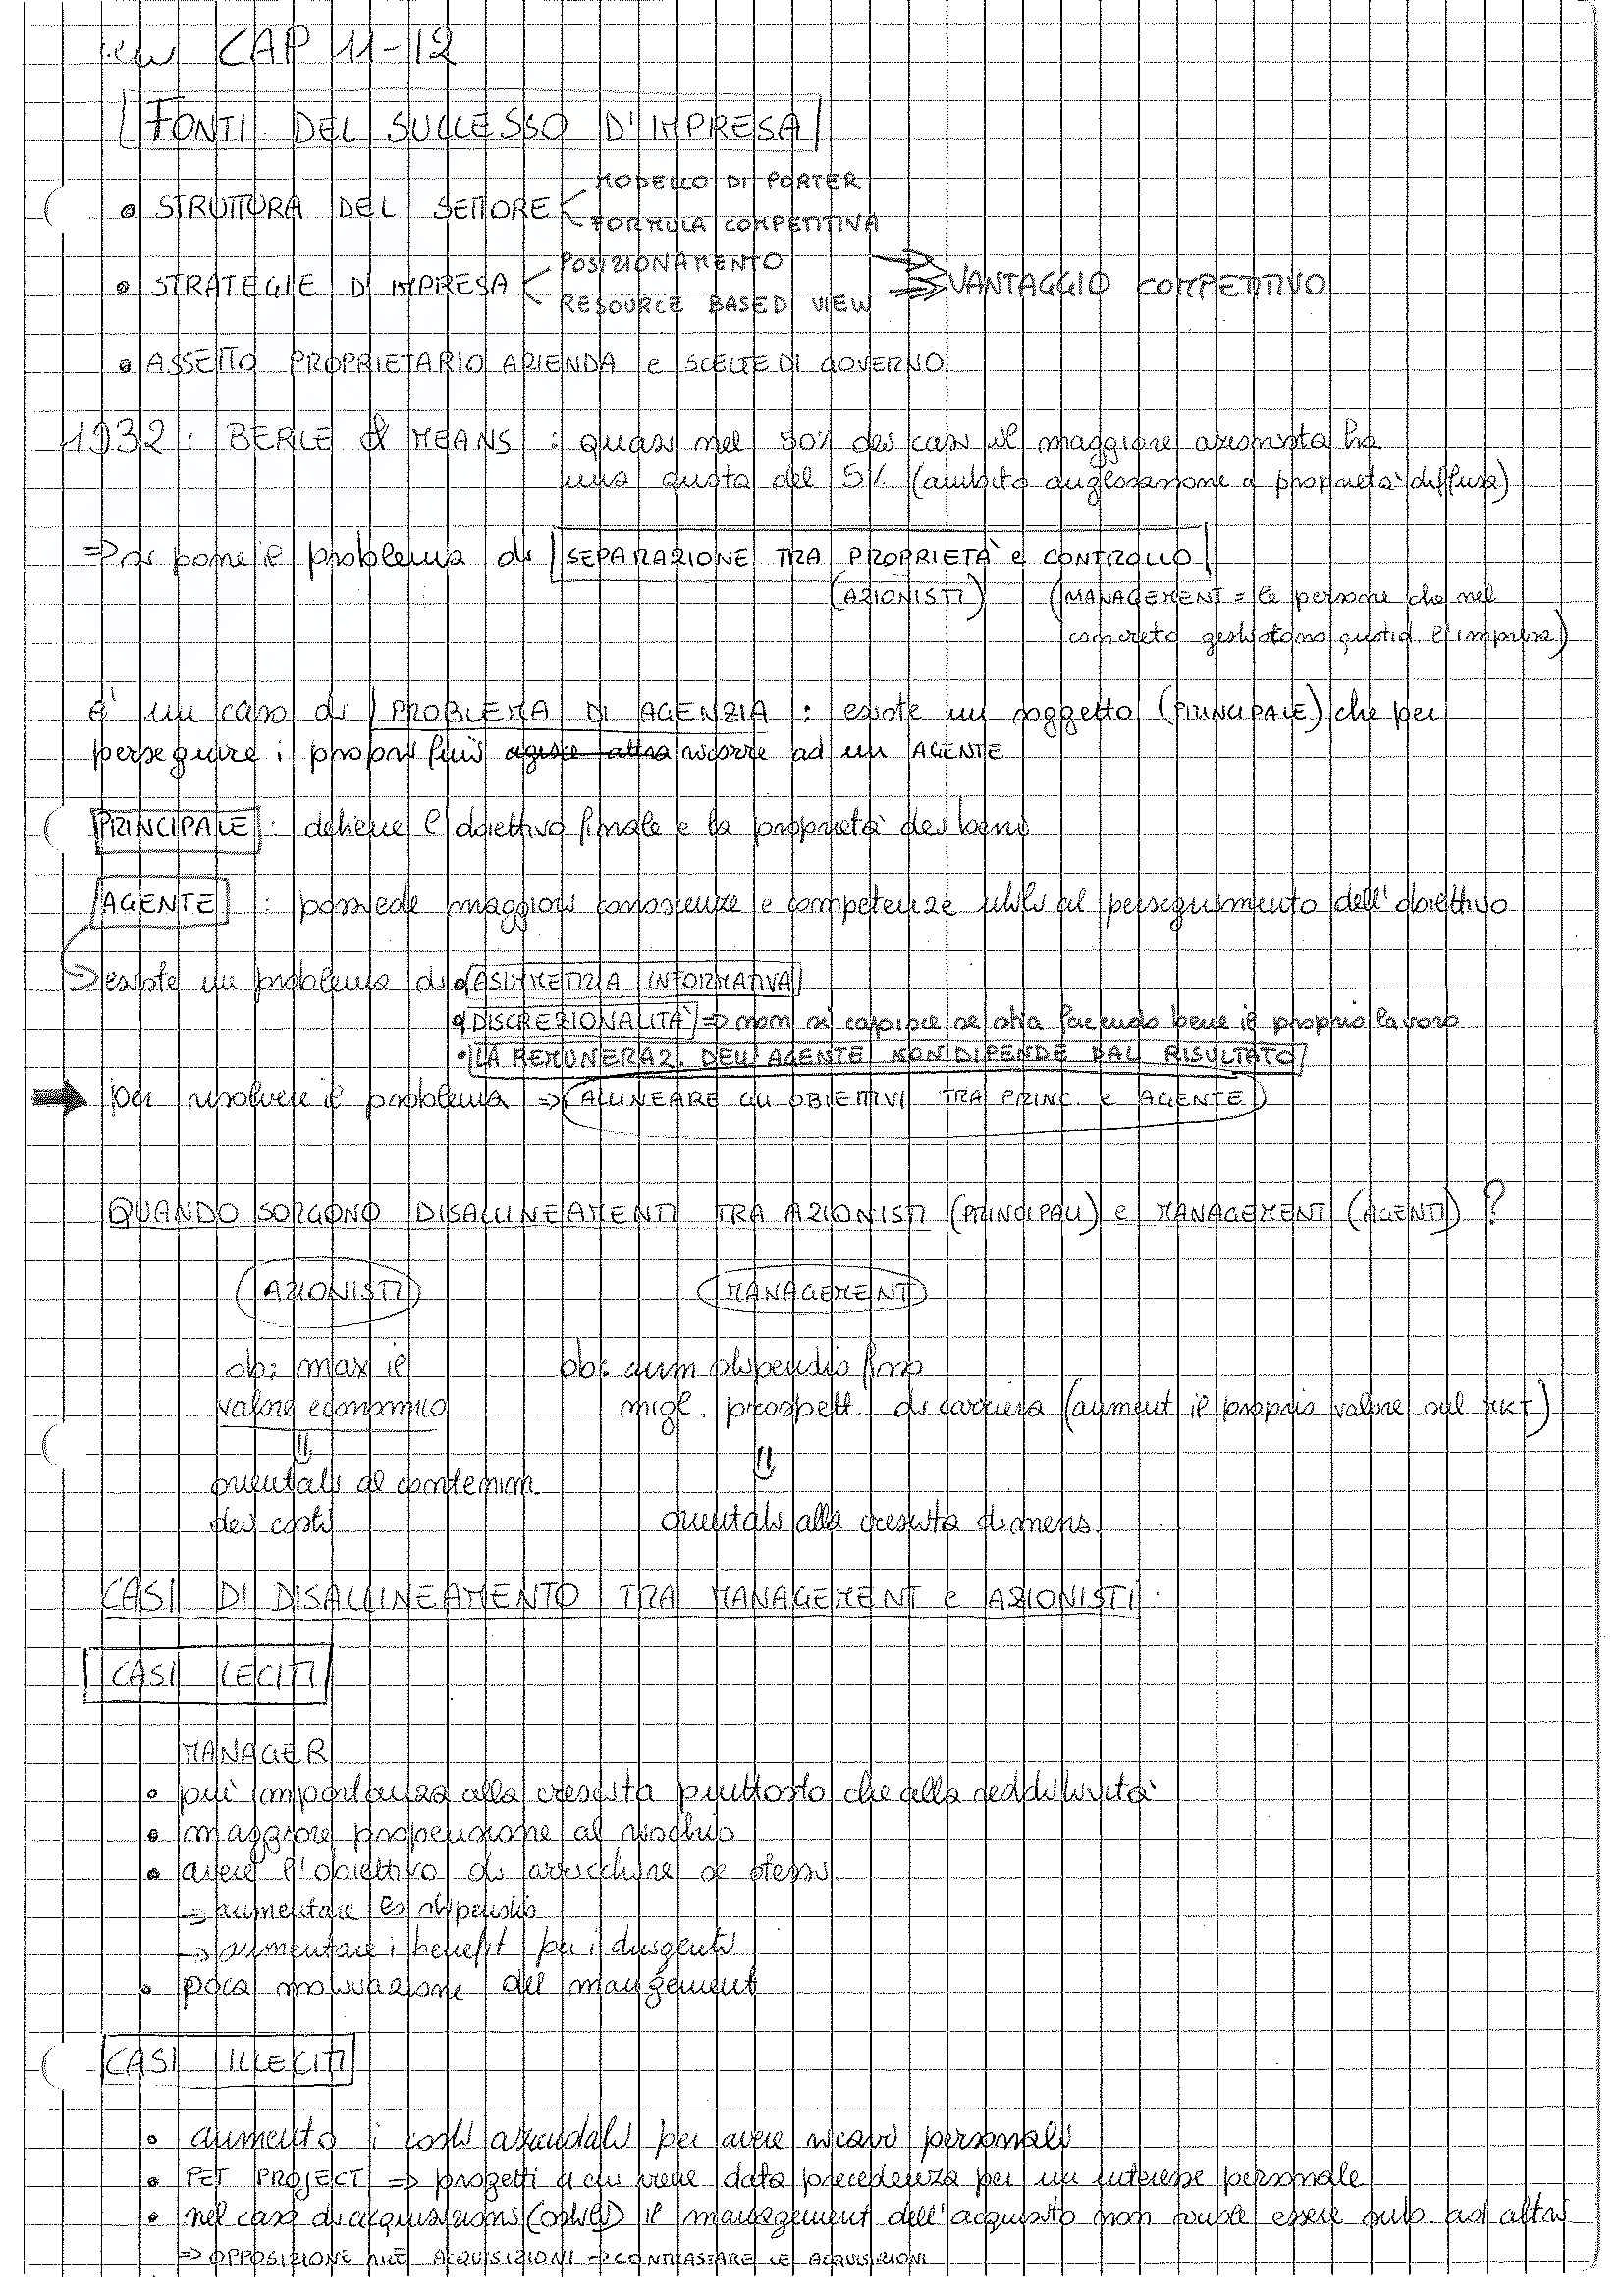 CAP 11-12
FONTI DEL SUCCESSO D'IMPRESA
MODELLO DI PORTER
• STRUTTURA DEL SETTORE
FORMULA COMPETITIVA
POSIZIONAMENTO
• STRATEGIE DI IMPRESA => VANTAGGIO COMPETITIVO
RESOURCE BASED VIEW
• ASSETTO PROPRIETARIO AZIENDA e SCELTE DI GOVERNO
1932: BERLE & MEANS: quasi nel 50% dei casi il maggiore azionista ha
una quota del 5% (ambito anglosassone a proprietà diffusa)
=> si pone il problema di SEPARAZIONE TRA PROPRIETÀ e CONTROLLO
(AZIONISTI) (MANAGEMENT = le persone che nel
concreto gestiscono quotid. l'impresa)
è un caso di PROBLEMA DI AGENZIA: esiste un soggetto (PRINCIPALE) che per
perseguire i propri fini ricorre ad un AGENTE
PRINCIPALE: detiene l'obiettivo finale e la proprietà dei beni
AGENTE: possiede maggiori conoscenze e competenze utili al perseguimento dell'obiettivo
-> esiste un problema di • ASIMMETRIA INFORMATIVA
• DISCREZIONALITÀ => non si capisce se stia facendo bene il proprio lavoro
• LA REMUNERAZ. DELL'AGENTE NON DIPENDE DAL RISULTATO
per risolvere il problema => ALLINEARE GLI OBIETTIVI TRA PRINC. e AGENTE
QUANDO SORGONO DISALLINEAMENTI TRA AZIONISTI (PRINCIPALI) e MANAGEMENT (AGENTI)?
AZIONISTI MANAGEMENT
ob: max il ob: aum stipendio fisso
valore economico migl. prospett di carriera (aument il proprio valore sul MKT)
orientati al contenim.
dei costi orientati alla crescita dimens.
CASI DI DISALLINEAMENTO TRA MANAGEMENT e AZIONISTI.
CASI LECITI
MANAGER
• più importanza alla crescita piuttosto che alla redditività
• maggiore propensione al rischio
• avere l'obiettivo di arricchire se stessi
-> aumentare lo stipendio
-> aumentare i benefit per i dirigenti
• poca motivazione del mangement
CASI ILLECITI
• aumento i costi aziendali per avere ricavi personali
• PET PROJECT => progetti a cui viene data precedenza per un interesse personale
• nel caso di acquisizioni (ostili) il management dell'acquisito non vuole essere sub ad altri
=> OPPOSIZIONE ALLE ACQUISIZIONI -> CONTRASTARE LE ACQUISIZIONI